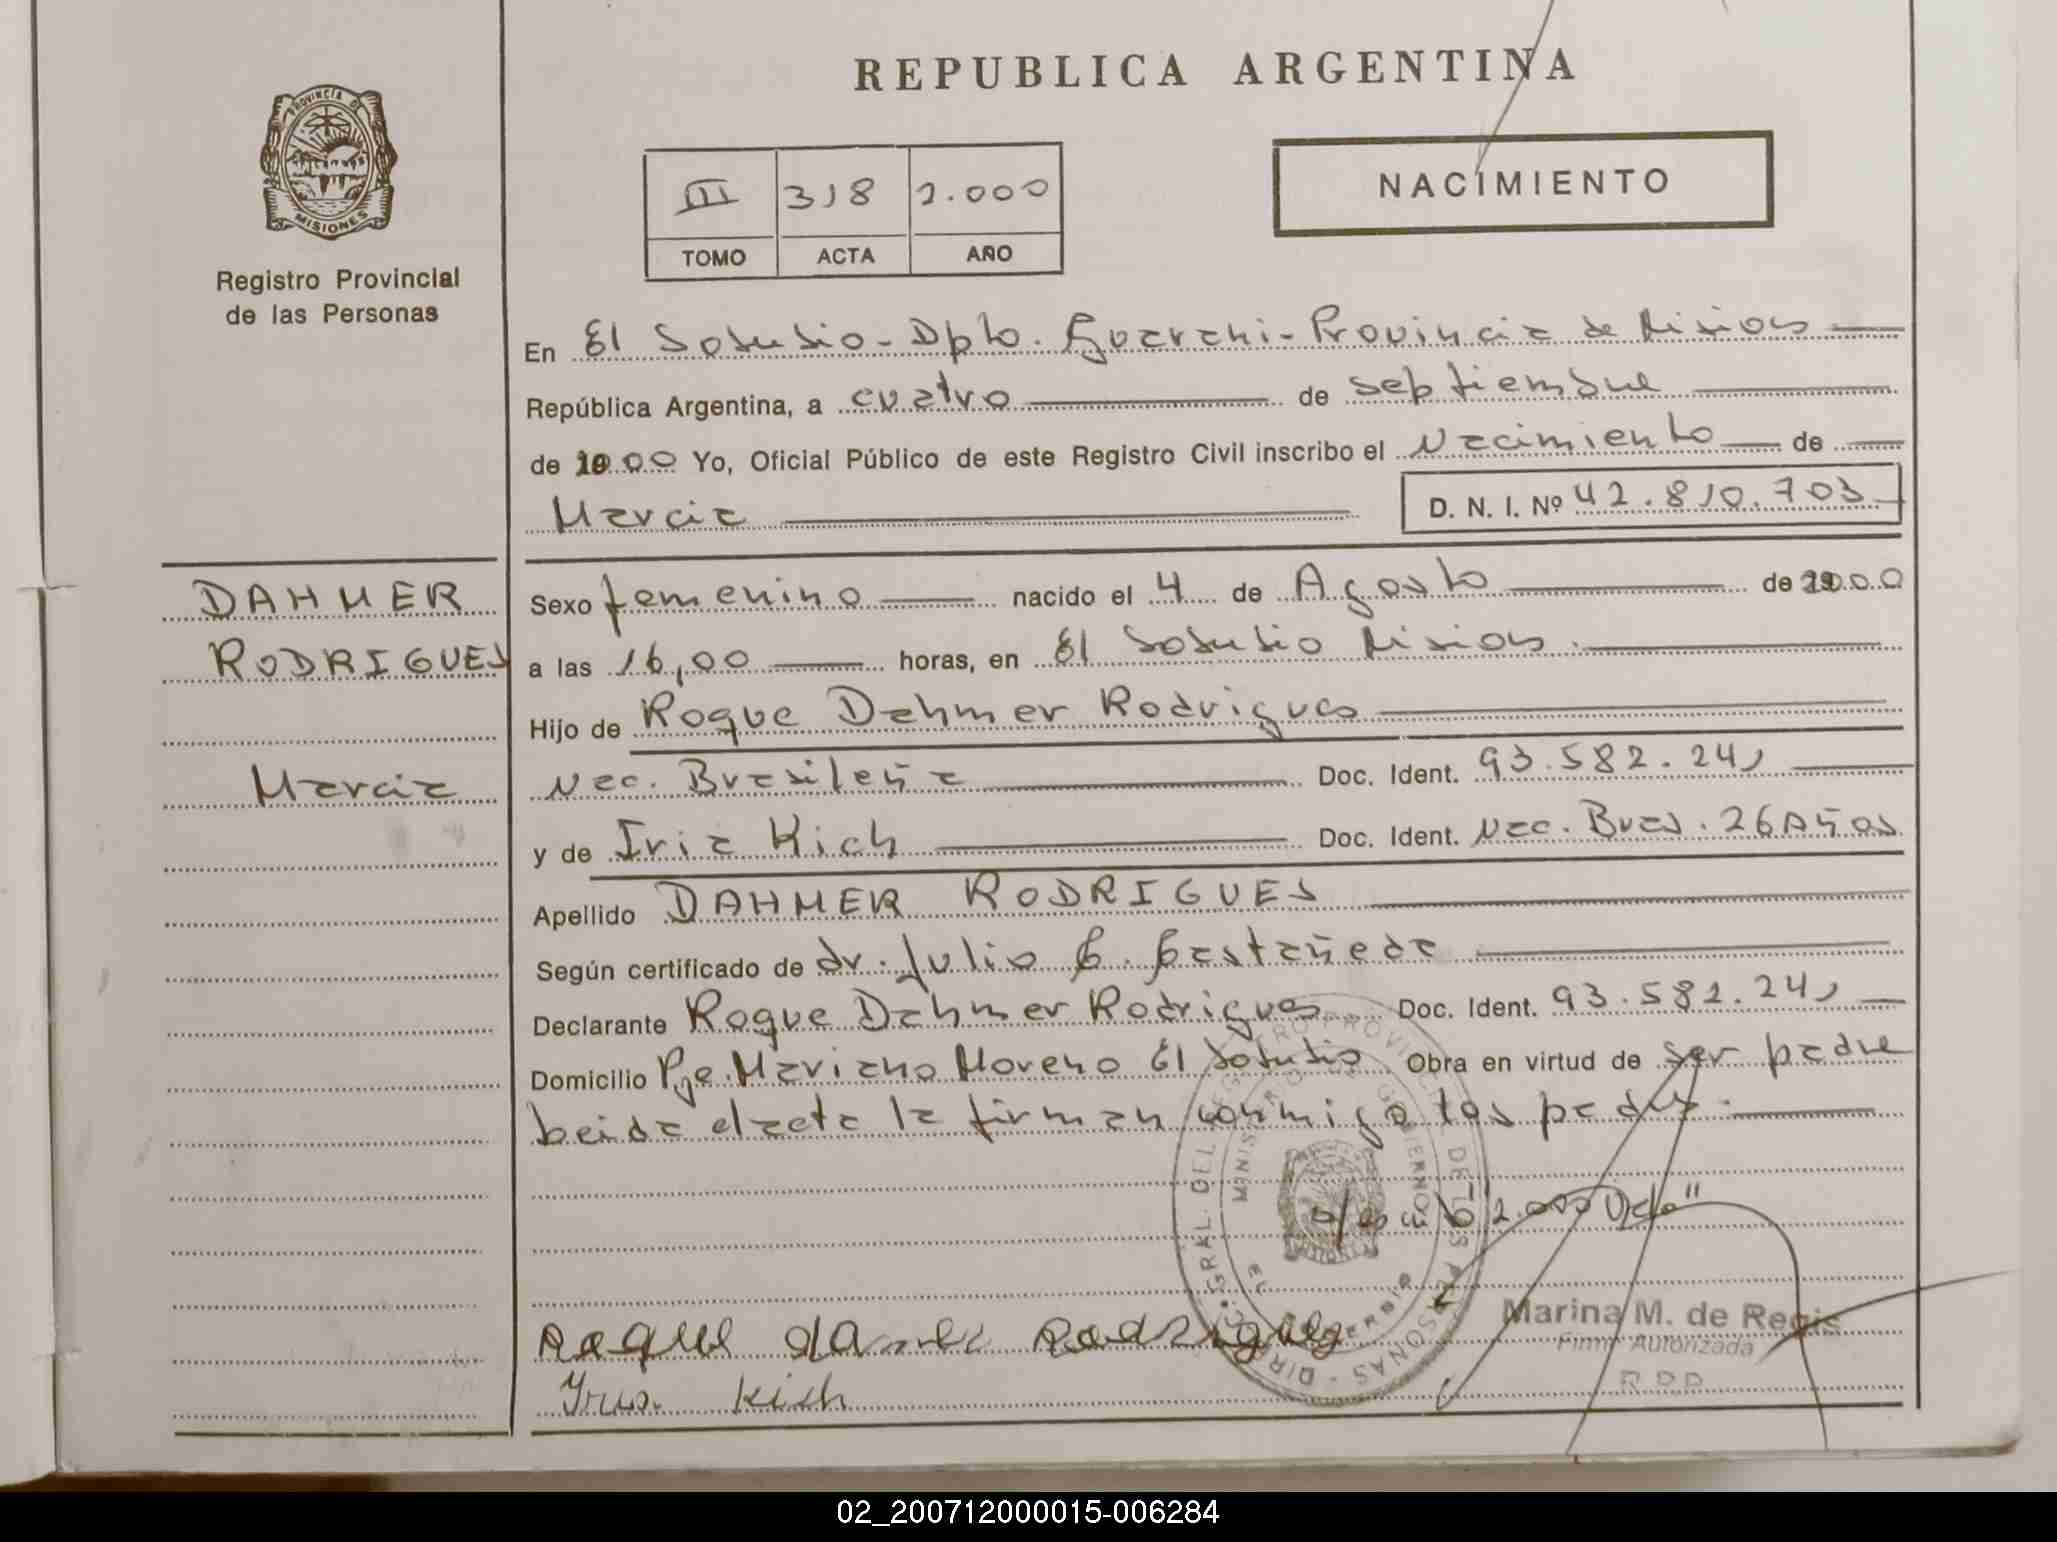 REPUBLICA ARGENTINA
PROVINCIA DE
MISIONES
Registro Provincial
de las Personas
III 318 2.000
TOMO ACTA AÑO
NACIMIENTO
En El Soberbio - Dpto. Guarani - Provincia de Misiones
República Argentina, a cuatro de septiembre
de 2000 Yo, Oficial Público de este Registro Civil inscribo el Nacimiento de
Marcia D. N. I. Nº 42.810.703
DAHMER
RODRIGUES
Marcia
Sexo femenino nacido el 4 de Agosto de 2000
a las 16,00 horas, en El Soberbio Misiones.
Hijo de Roque Dahmer Rodrigues
Nac. Brasileña Doc. Ident. 93.582.241
y de Iria Kich Doc. Ident. Nac. Bras. 26 Años
Apellido DAHMER RODRIGUES
Según certificado de dr. Julio C. Castañeda
Declarante Roque Dahmer Rodrigues Doc. Ident. 93.582.241
Domicilio Pje. Mariano Moreno El Soberbio Obra en virtud de ser padre
Leida el acta la firman conmigo los padres.
2.000 Vale"
DIR. GRAL. DEL REGISTRO PROVINCIAL DE LAS PERSONAS
MINISTERIO DE GOBIERNO
EL SOBERBIO
Roque Rodrigues
Kich
Marina M. de Regis
Firma Autorizada
RPP
02_200712000015-006284